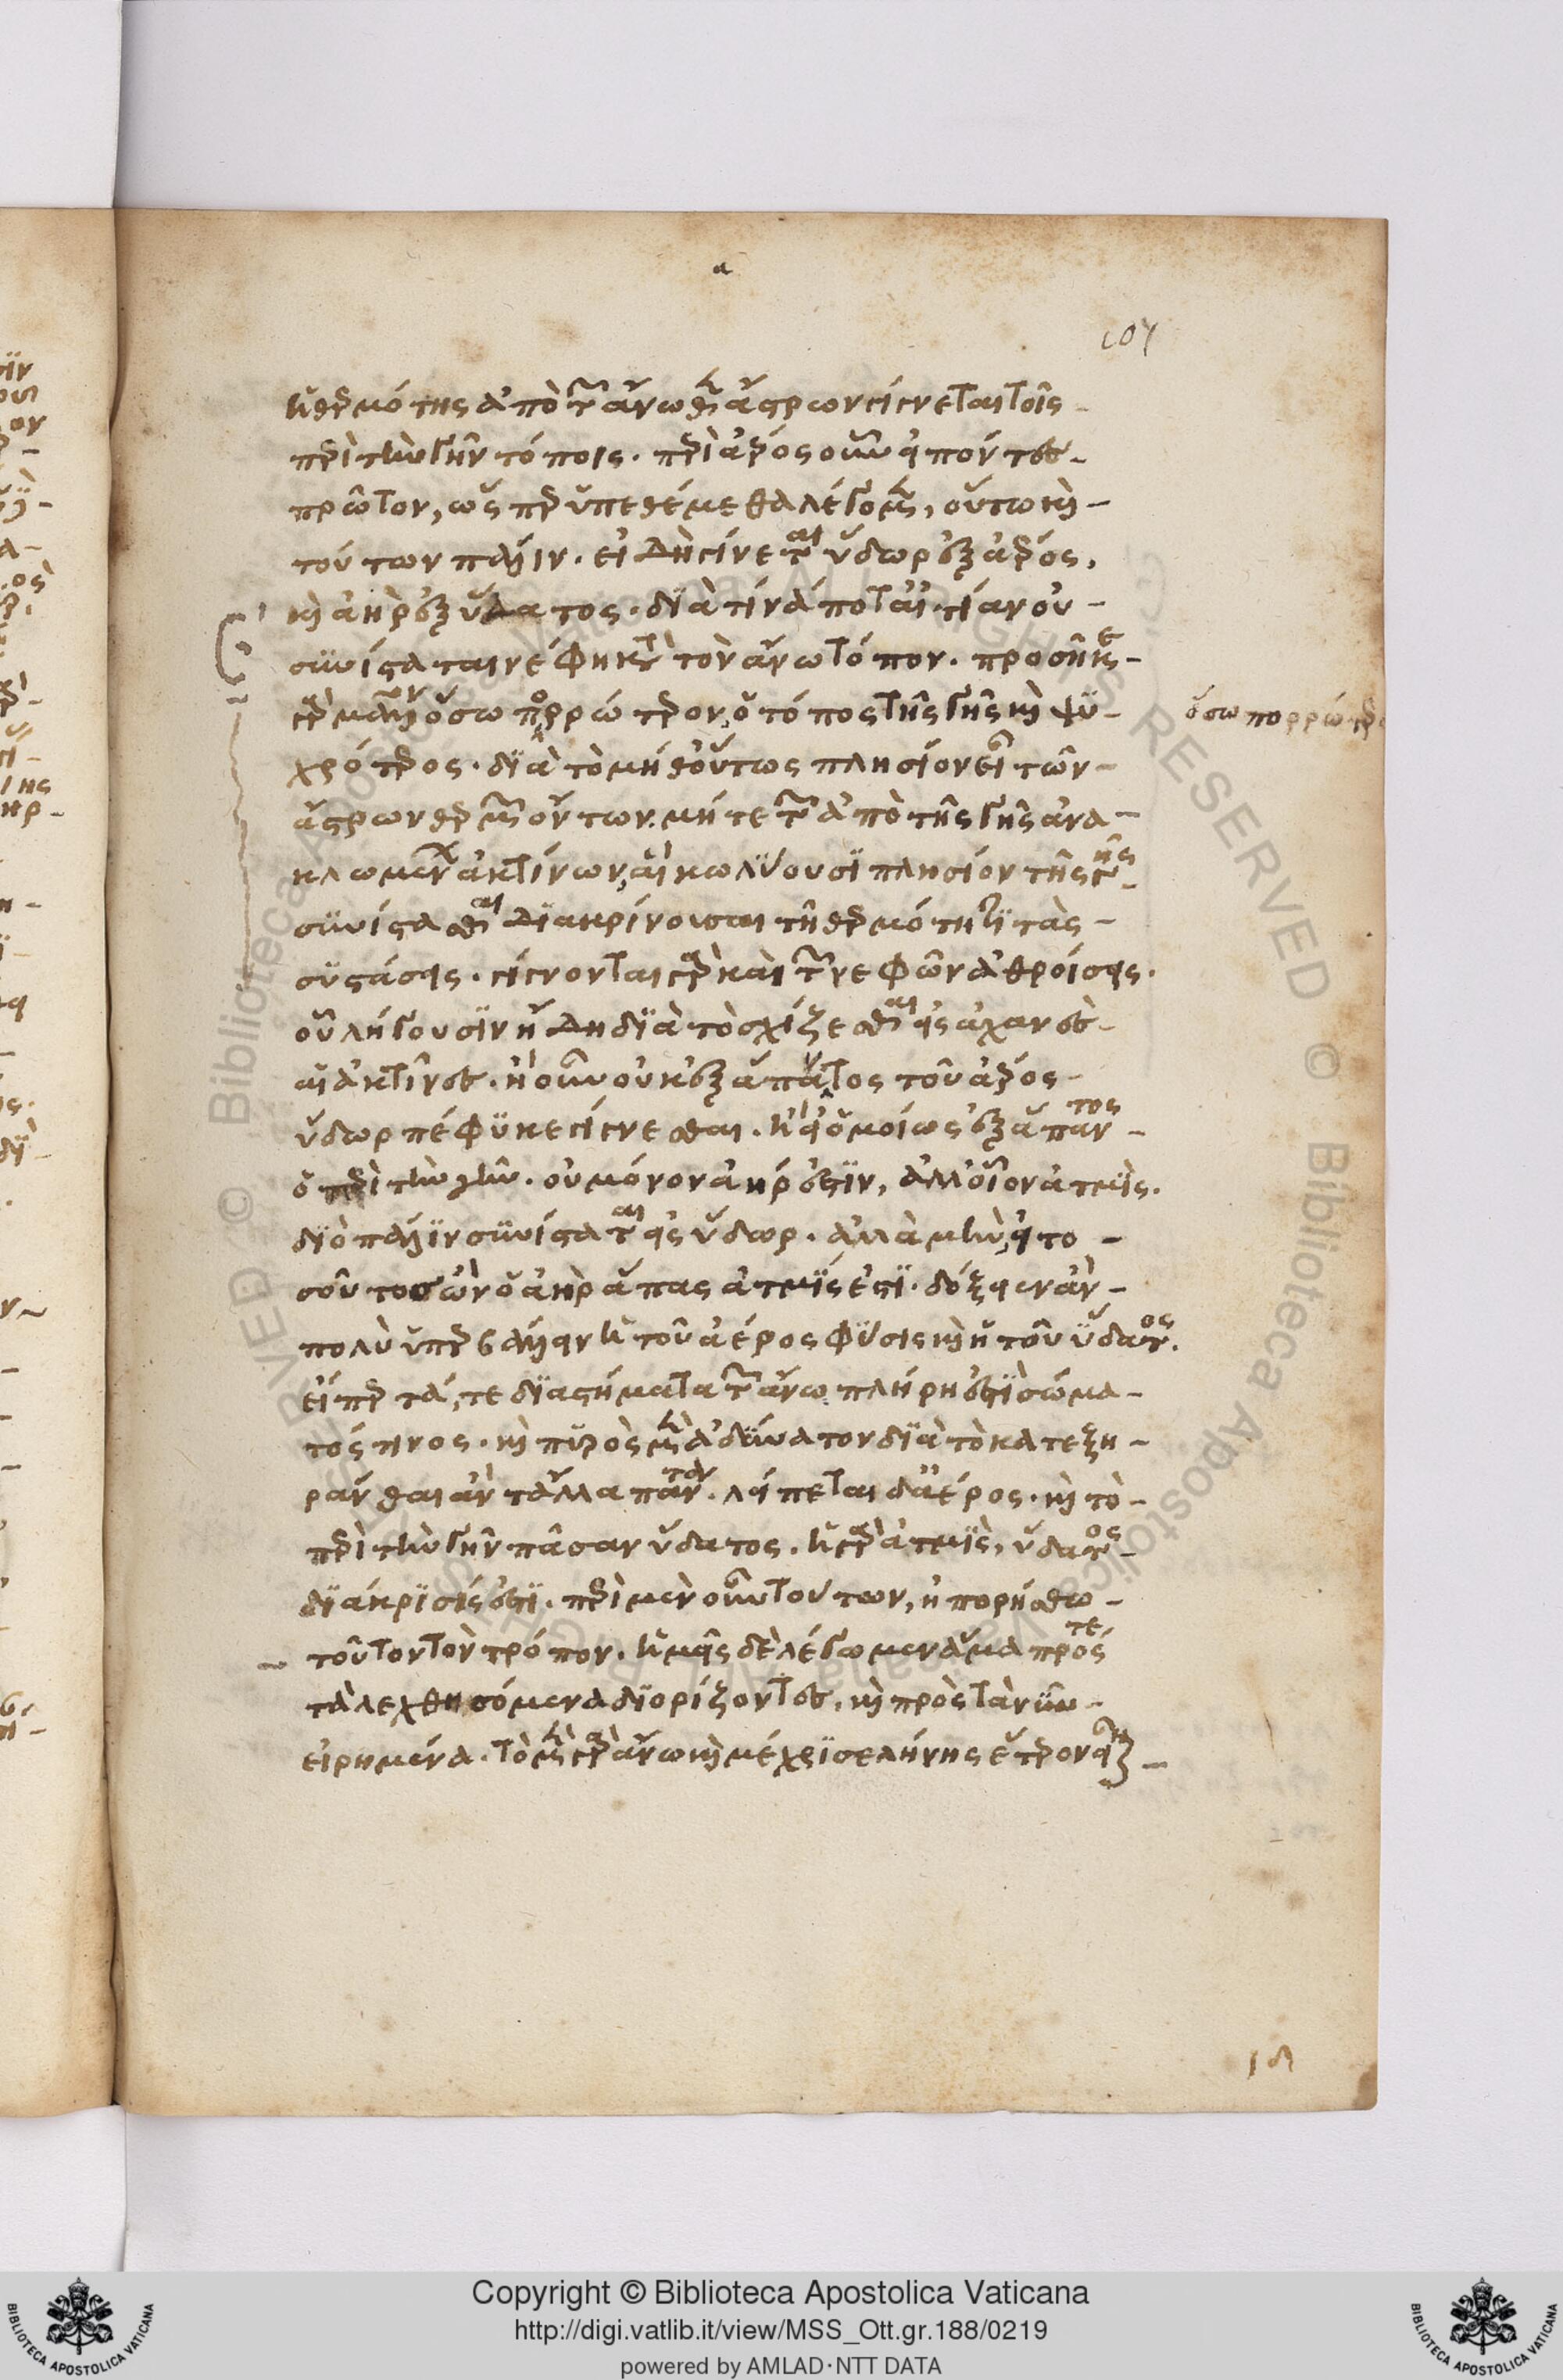 α
107
ἡ θερμότης ἀπὸ τῶν ἄνωθεν ἄστρων γίγνεται τοῖς
περὶ τὴν γῆν τόποις. περὶ ἀέρος οὖν εἰπόντες
πρῶτον, ὥσπερ ὑπεθέμεθα λέγομεν, οὕτω καὶ
τούτων πάλιν. εἰ δὴ γίνεται ὕδωρ ἐξ ἀέρος,
καὶ ἀὴρ ἐξ ὕδατος. διὰ τίνά ποτ' αἰτίαν οὐ
συνίσταται νέφη κατὰ τὸν ἄνω τόπον. προσῆκε
γὰρ μᾶλλον ὅσω πορρώτερον, ὁ τόπος τῆς γῆς καὶ ψυ-
ὅσω πορρώτερ
χρότερος. διὰ τὸ μήθ' οὕτως πλησίον εἶναι τῶν
ἄστρων θερμῶν ὄντων. μήτε τῶν ἀπὸ τῆς γῆς ἀνα-
κλωμένων ἀκτίνων, αἳ κωλύουσι πλησίον τῆς γῆς
συνίστασθαι διακρίνουσαι τῇ θερμότητι τὰς
συστάσεις. γίγνονται γὰρ καὶ τῶν νεφῶν ἀθροίσεις.
οὗ λήγουσιν ἤδη διὰ τὸ σχίζεσθαι εἰς ἀχανὲς
αἱ ἀκτῖνες. ἢ οὖν οὐκ ἐξ ἅπαντος τοῦ ἀέρος
ὕδωρ πέφυκε γίγνεσθαι. ἢ εἰ ὁμοίως ἐξ ἅπαντος
ὁ περὶ τὴν γῆν. οὐ μόνον ἀήρ ἐστιν, ἀλλ' οἷον ἀτμίς.
διὸ πάλιν συνίσταται εἰς ὕδωρ. ἀλλὰ μὴν, εἰ το
σοῦτος ὢν ὁ ἀὴρ ἅπας ἀτμίς ἐστι. δόξειεν ἂν
πολὺ ὑπερβάλλειν ἡ τοῦ ἀέρος φύσις καὶ ἡ τοῦ ὕδατος.
εἴπερ τά, τε διαστήματα τῶν ἄνω πλήρη ἐστὶ σώμα-
τός τινος. καὶ πυρὸς μὲν ἀδύνατον διὰ τὸ κατεξη-
ράνθαι ἂν τἄλλα πάντα. λείπεται δ' ἀέρος. καὶ τὸ
περὶ τὴν γῆν πᾶσαν ὕδατος. ἡ γὰρ ἀτμὶς, ὕδατος
διάκρισίς ἐστι. περὶ μὲν οὖν τούτων, ἠπορήσθω
τοῦτον τὸν τρόπον. ἡμεῖς δὲ λέγωμεν ἅμα πρός τε
τὰ λεχθησόμενα διορίζοντες, καὶ πρὸς τὰ νῦν
εἰρημένα. τὸ μὲν γὰρ ἄνω καὶ μέχρι σελήνης ἕτερον εἶναι
ιδ
Copyright © Biblioteca Apostolica Vaticana
http://digi.vatlib.it/view/MSS_Ott.gr.188/0219
powered by AMLAD·NTT DATA